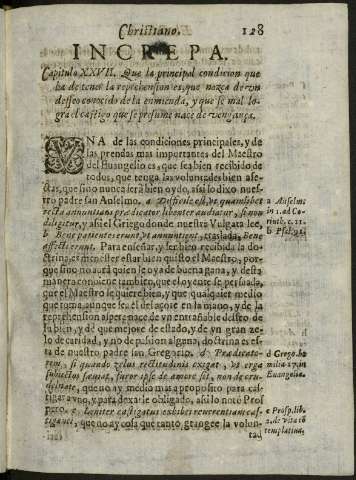 Christiano. 128
INCREPA.
Capitulo XXVII. Que la principal condicion que
ha de tener la reprehension es, que nazca de vn
desseo conocido de la enmienda, y que se mal lo-
gra el castigo que se presume nace de vengança.
VNA de las condiciones principales, y de
las prendas mas importantes del Maestro
del Euangelio es, que sea bien recibido de
todos, que tenga las voluntades bien afe-
ctas, que sino nunca será bien oydo, assi lo dixo nues-
tro padre san Anselmo, a Difficile est, vt quamlibet
recta annuntians prædicator libenter audiatur, si non
diligitur, y assi el Griego donde nuestra Vulgata lee,
b Bene patientes erunt, vt annuntient, traslada, Bene
affecti erunt. Para enseñar, y ser bien recibida la do-
ctrina, es menester estar bien quisto el Maestro, por-
que sino no aurà quien le oya de buena gana, y desta
manera conoce tambien, que el oyente se persuada,
que el Maestro le quiere bien, y que qualquier medio
que toma, aunque sea el del açote en la mano, y de la
reprehension aspera nace de vn entrañable desseo de
su bien, y de que mejore de estado, y de vn gran ze-
lo de caridad, y no de passion alguna, doctrina es es-
ta de nuestro padre san Gregorio. d Prædicato-
rem, si quando zelus rectitudinis exigat, vt erga
subiectos sæuiat, furor ipse de amore sit, non de cru-
delitate, que no ay medio mas a proposito para cas-
tigar a vno, y para dexarle obligado, assi lo notò Pros
pero. e Leniter castigatus exhibet reuerentiam cas-
tiganti, que no ay cosa que tanto grangee la volun-
tad
a Anselm.
in 1. ad Co-
rinth. c. 11.
b Psal. 91.
d Greg. ho
milia 17. in
Euangelia.
e Prosp. lib.
2. de vita cō
templatiua.